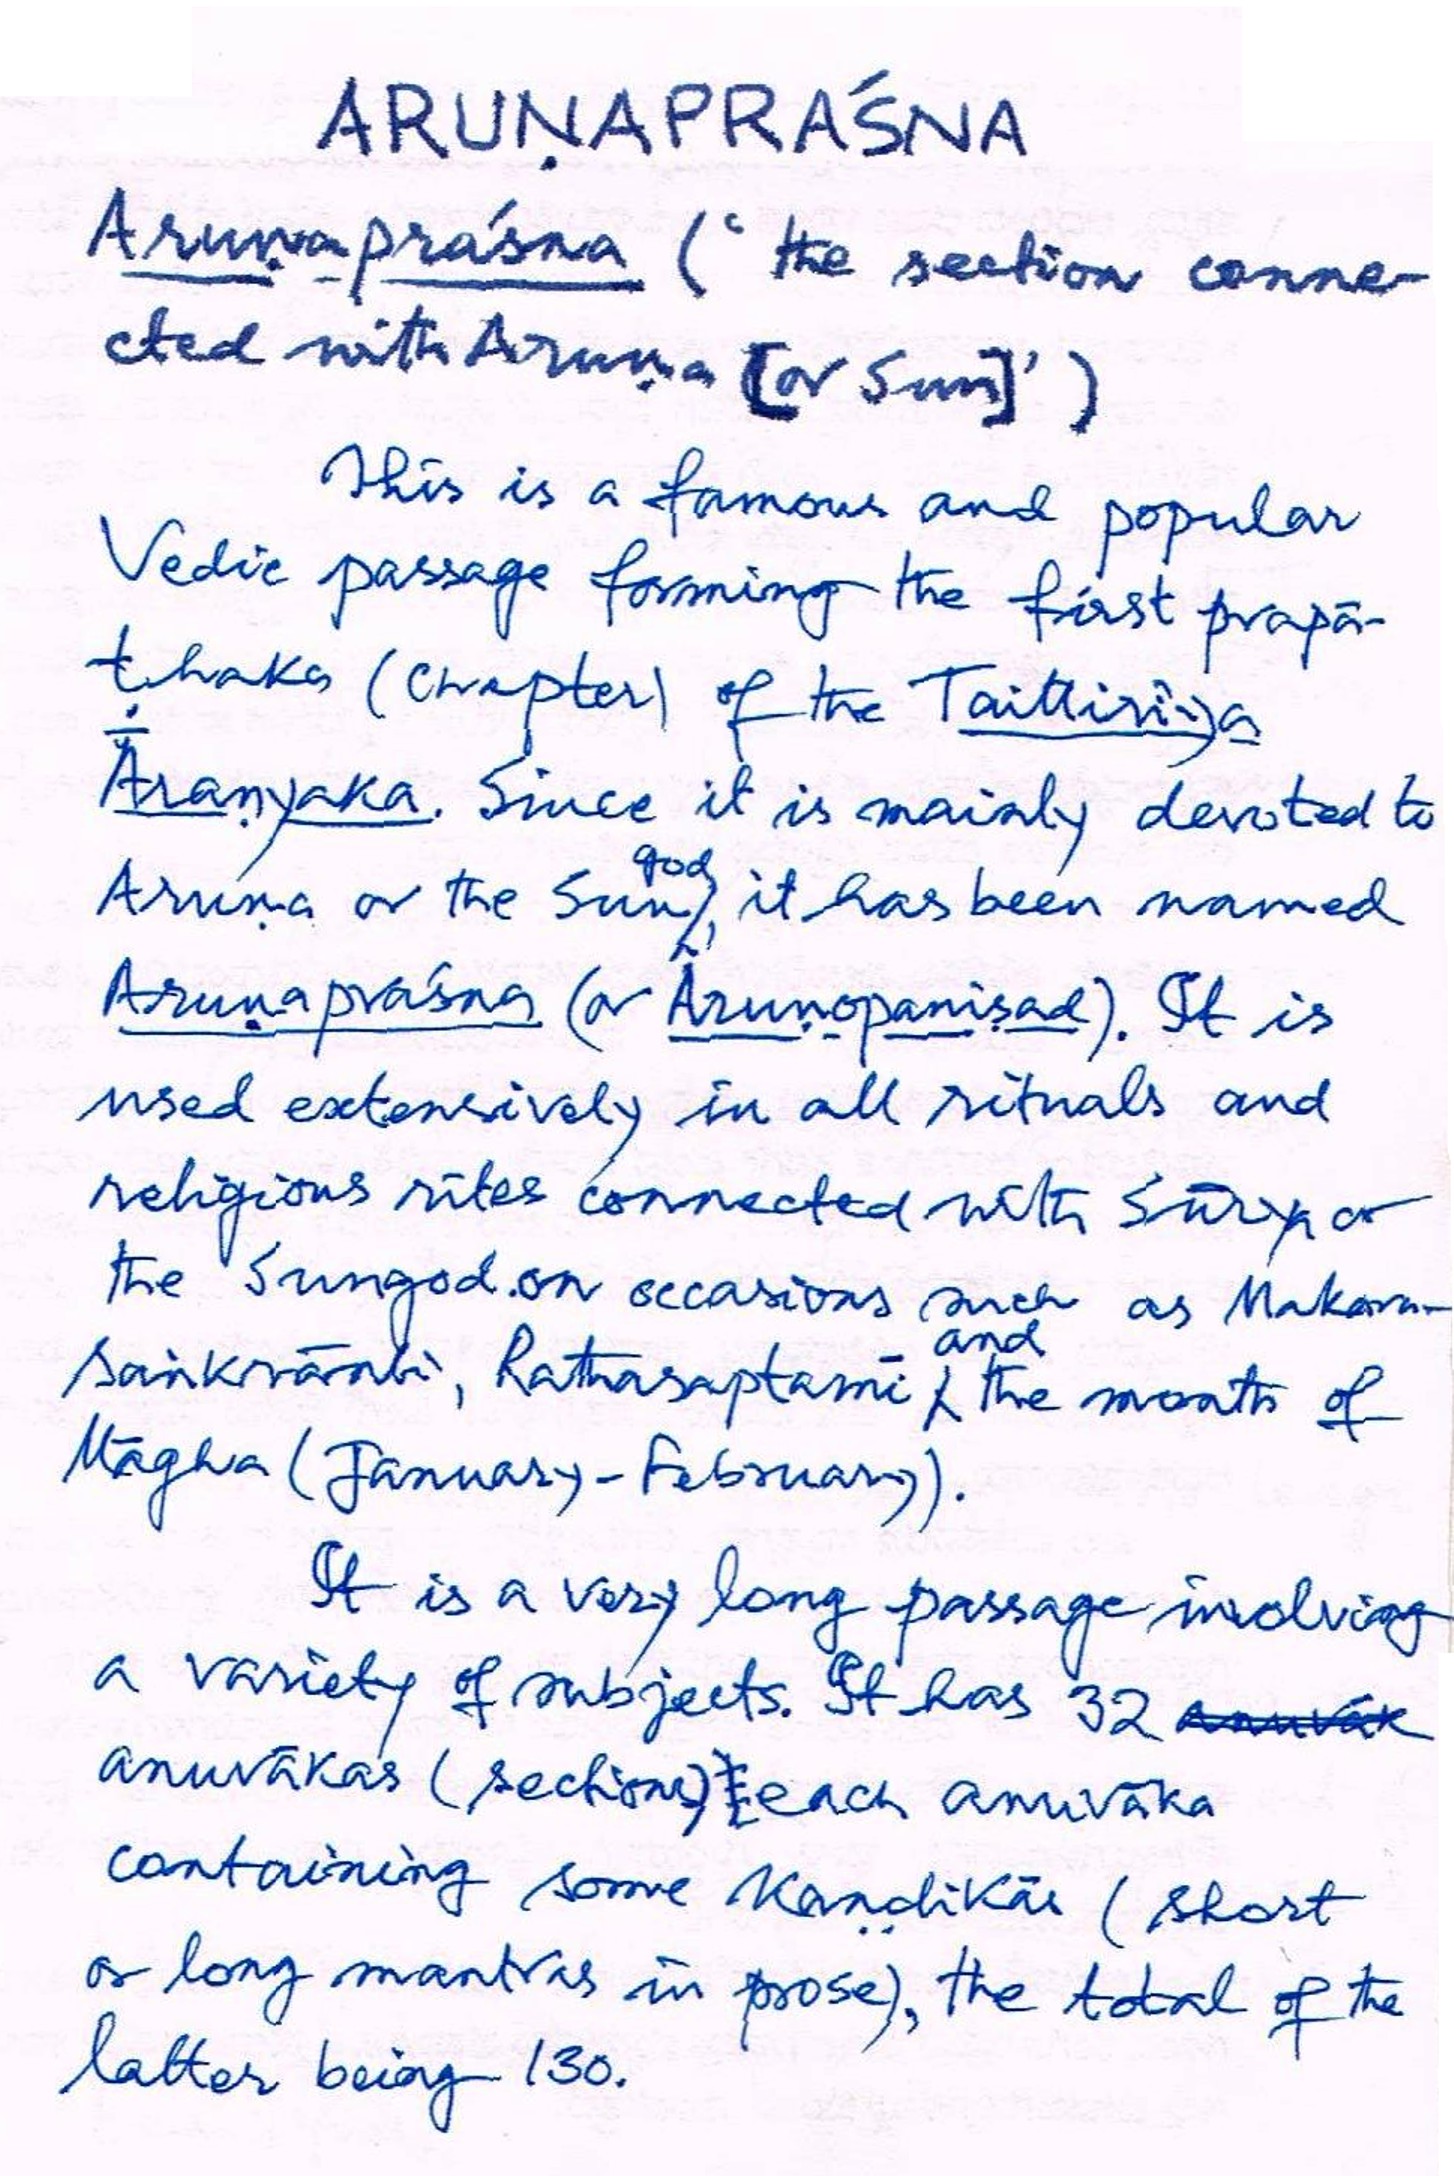 ARUṆAPRAŚNA
Aruṇapraśna (‘the section conne-
cted with Aruṇa [or Sun]’)
This is a famous and popular
Vedic passage forming the first prapā-
ṭhaka (chapter) of the Taittirīya
Āraṇyaka. Since it is mainly devoted to
Aruṇa or the Sungod, it has been named
Aruṇapraśna (or Āruṇopaniṣad). It is
used extensively in all rituals and
religious rites connected with Sūrya or
the Sungod on occasions such as Makara-
saṅkrānti, Rathasaptamī and the month of
Māgha (January-February).
It is a very long passage involving
a variety of subjects. It has 32 anuvāk
anuvākas (sections) each anuvāka
containing some Kaṇḍikās (short
or long mantras in prose), the total of the
latter being 130.